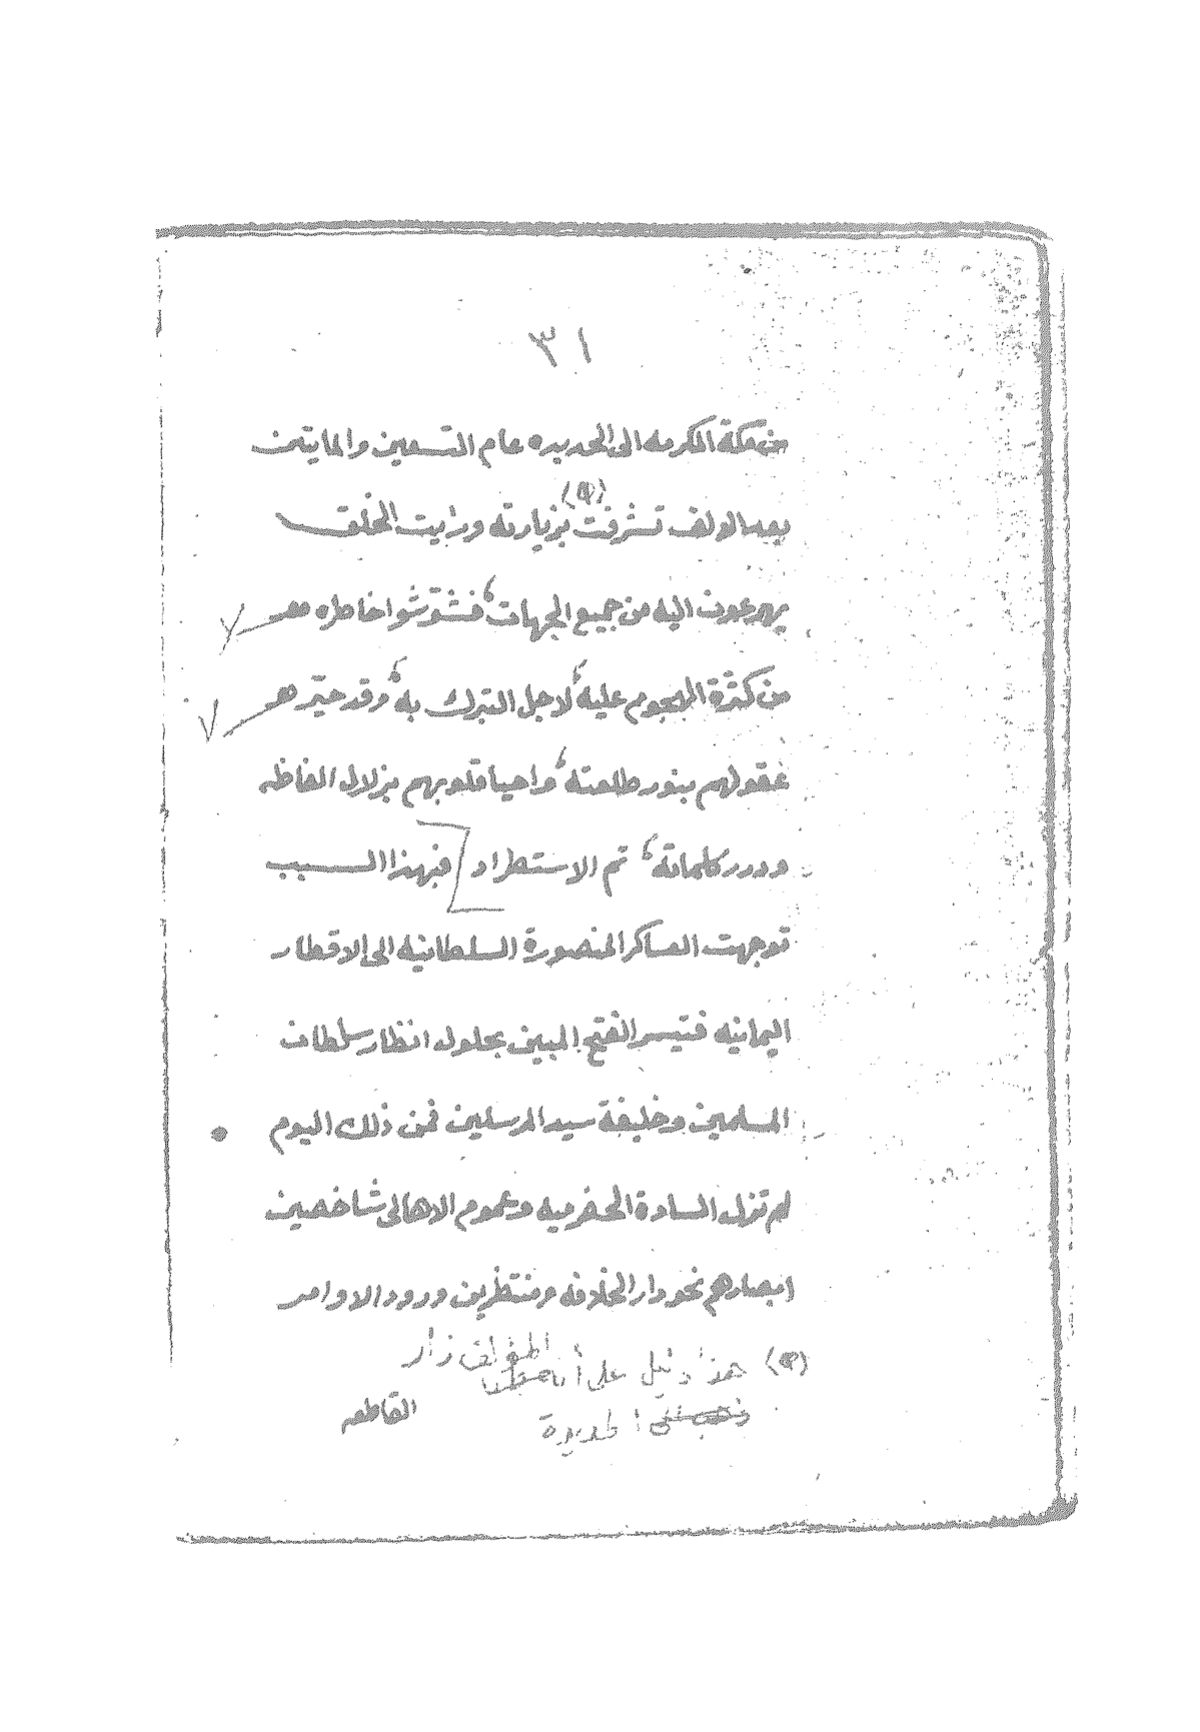 ٣١
من مكة المكرمه الى الحديده عام التسعين والمايتين
بعد الالف تشرفت بزيارته ورايت الخلق
(٩)
يهرعون اليه من جميع الجهات فشوشوا خاطره
من كثرة الهجوم عليه لاجل التبرك به وقد حيّر
عقولهم بنور طلعته واحيا قلوبهم بزلال الفاظه
ودرر كلماته تم الاستطراد فبهذا السبب
توجهت العساكر المنصورة السلطانيه الى الاقطار
اليمانيه فتيسر الفتح المبين بحلول انظار سلطان
المسلمين وخليفة سيد المرسلين فمن ذلك اليوم
لم تزل السادة الحضرميه وعموم الاهالى شاخصين
ابصارهم نحو دار الخلافه ومنتظرين ورود الاوامر
(٩) هذا دليل على أن المؤلف زار
الحديدة
القاطعه